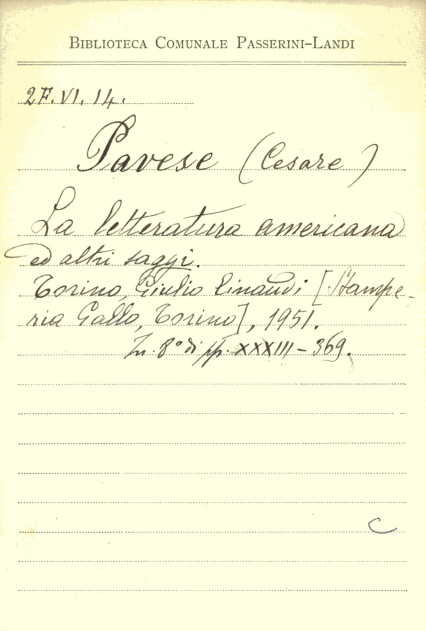 BIBLIOTECA COMUNALE PASSERINI-LANDI
2F.VI.14.
Pavese (Cesare)
La letteratura americana
ed altri saggi.
Torino, Giulio Einaudi [Stampe-
ria Gallo, Torino], 1951.
In 8° di pp. XXXIII-369.
C